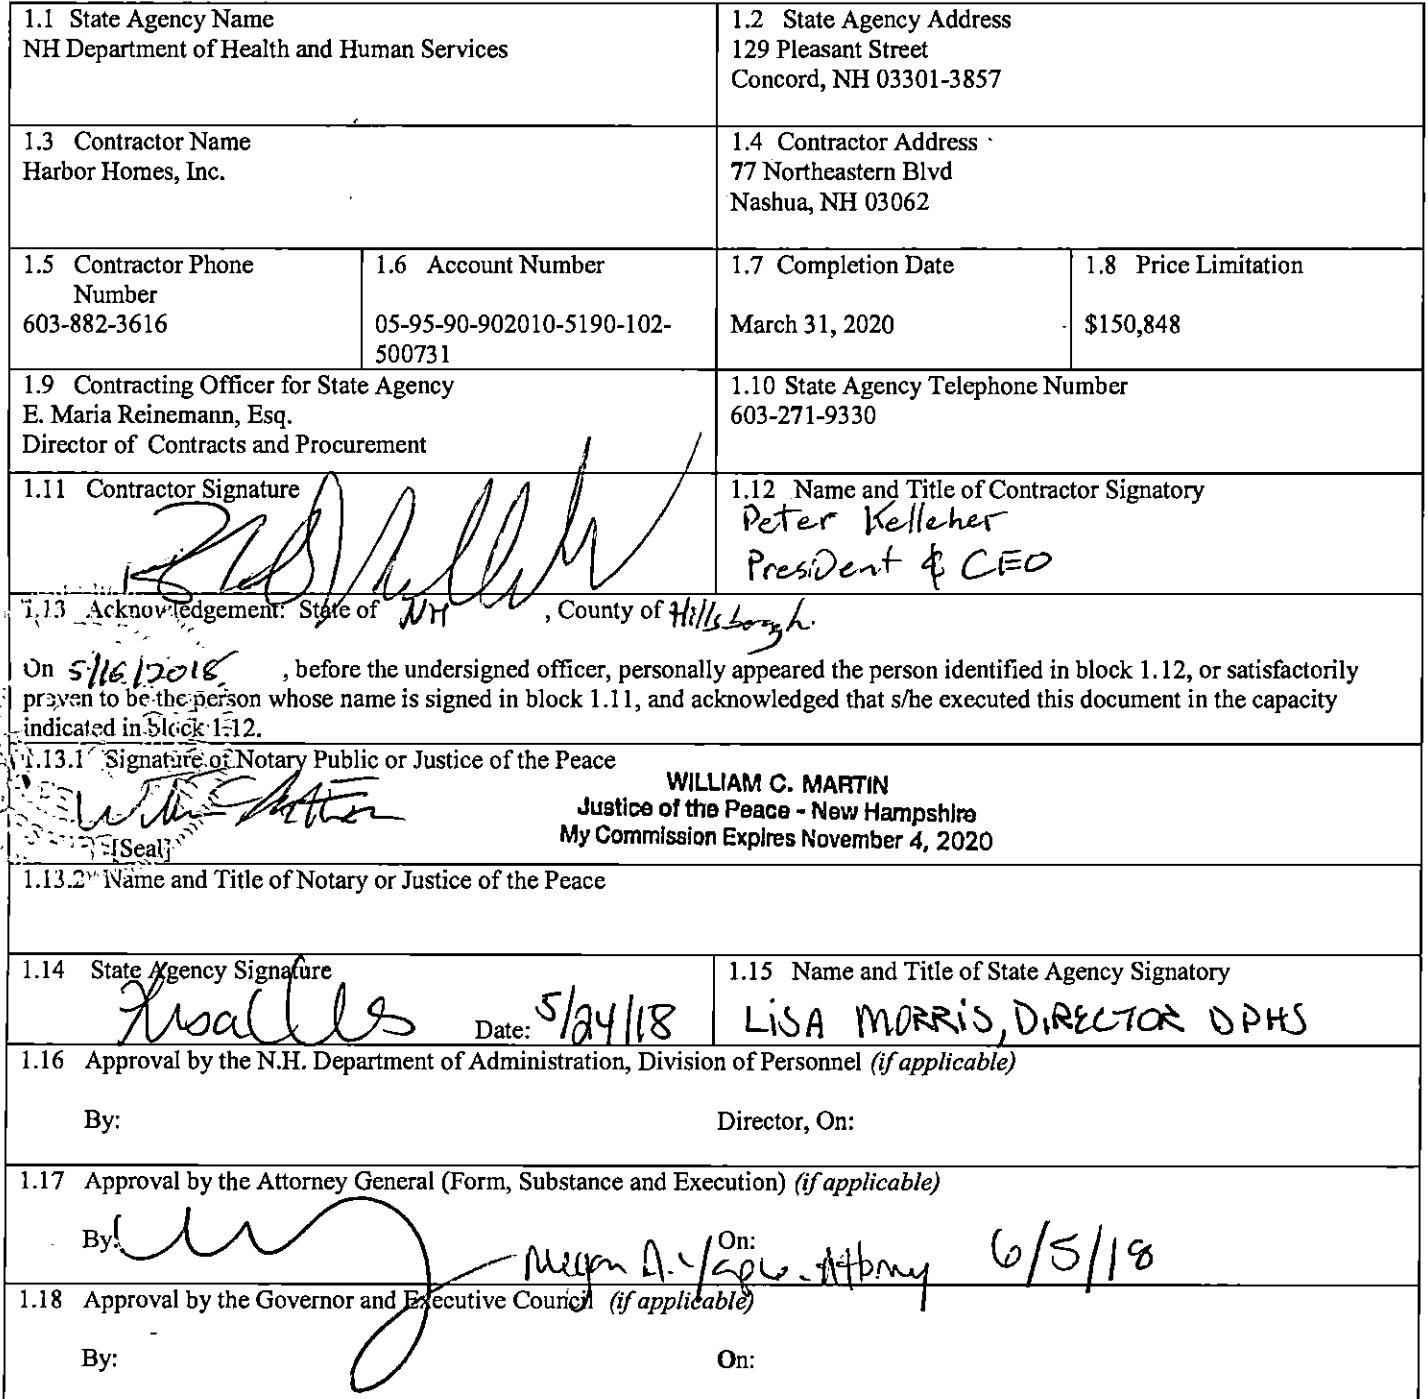 1.1 State Agency Name
NH Department of Health and Human Services
1.2 State Agency Address
129 Pleasant Street
Concord, NH 03301-3857
1.3 Contractor Name
Harbor Homes, Inc.
1.4 Contractor Address
77 Northeastern Blvd
Nashua, NH 03062
1.5 Contractor Phone
Number
603-882-3616
1.6 Account Number
05-95-90-902010-5190-102-
500731
1.7 Completion Date
March 31, 2020
1.8 Price Limitation
$150,848
1.9 Contracting Officer for State Agency
E. Maria Reinemann, Esq.
Director of Contracts and Procurement
1.10 State Agency Telephone Number
603-271-9330
1.11 Contractor Signature
1.12 Name and Title of Contractor Signatory
Peter Kelleher
President & CEO
1.13 Acknowledgement: State of NH , County of Hillsborough.
On 5/16/2018 , before the undersigned officer, personally appeared the person identified in block 1.12, or satisfactorily
proven to be the person whose name is signed in block 1.11, and acknowledged that s/he executed this document in the capacity
indicated in block 1.12.
1.13.1 Signature of Notary Public or Justice of the Peace
WILLIAM C. MARTIN
Justice of the Peace - New Hampshire
My Commission Expires November 4, 2020
[Seal]
1.13.2 Name and Title of Notary or Justice of the Peace
1.14 State Agency Signature
Date: 5/24/18
1.15 Name and Title of State Agency Signatory
LISA MORRIS, DIRECTOR DPHS
1.16 Approval by the N.H. Department of Administration, Division of Personnel (if applicable)
By: Director, On:
1.17 Approval by the Attorney General (Form, Substance and Execution) (if applicable)
By: Megan A. - Attorney On: 6/5/18
1.18 Approval by the Governor and Executive Council (if applicable)
By: On: